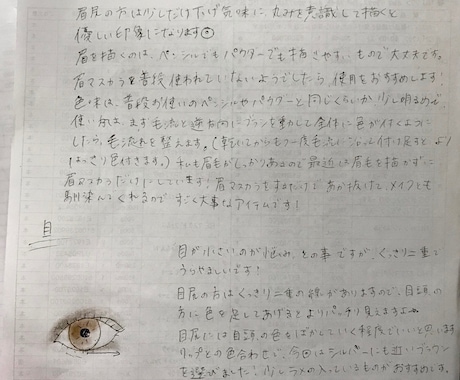 眉尻の方は少しだけ下げ気味に、丸みを意識して描くと
優しい印象になります
眉を描くのは、ペンシルでもパウダーでも描きやすいもので大丈夫です。
眉マスカラを普段使われていないようでしたら、使用をおすすめします!
色味は、普段お使いのペンシルやパウダーと同じくらいか少し明るめで
使い方は、まず毛流れと逆方向にブラシを動かして全体に色が付くように
したら、毛流れを整えます。(乾いてからもう一度毛流れに少し付け足すとより
はっきり色付きます。)私も眉毛がしっかりあるので最近は眉毛を描かずに
眉マスカラだけにしています!眉マスカラをするだけであか抜けて、メイクにも
馴染んでくれるので すごく大事なアイテムです!
目
目が小さいのが悩み、との事ですが、くっきり二重で
うらやましいです!
目尻の方はくっきり二重の線がありますので、目頭の
方に色を足してあげるとよりパッチリ見えますよ
目尻には目頭の色をぼかしていく程度でいいと思います
リップとの色合わせで、今回はシルバーにも近いブラウン
を選びました!少しラメの入っているものがおすすめです。